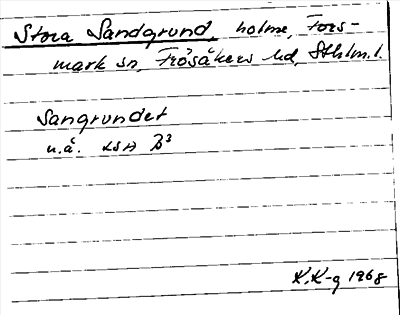 Stora Sandgrund, holme, Fors-
mark sn, Frösåkers hd, Sthlm.l.
Sangrundet
u.å. LSA B³
K.K-g 1968